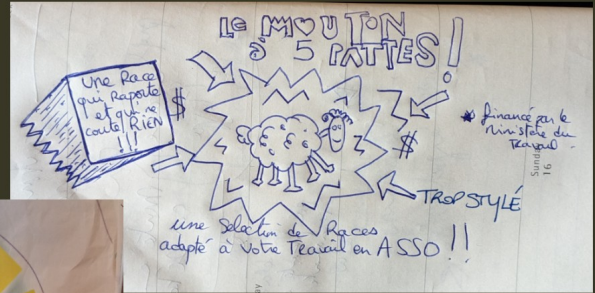 Le MOUTON
à 5 PATTES!
Une Race
qui Raporte
et qui ne
coute RIEN
!!!
$
$
* financé par le
Ministère du
Travail
TROP STYLÉ
une Sélection de Races
adapté à votre Travail en ASSO!!
Sunday
16